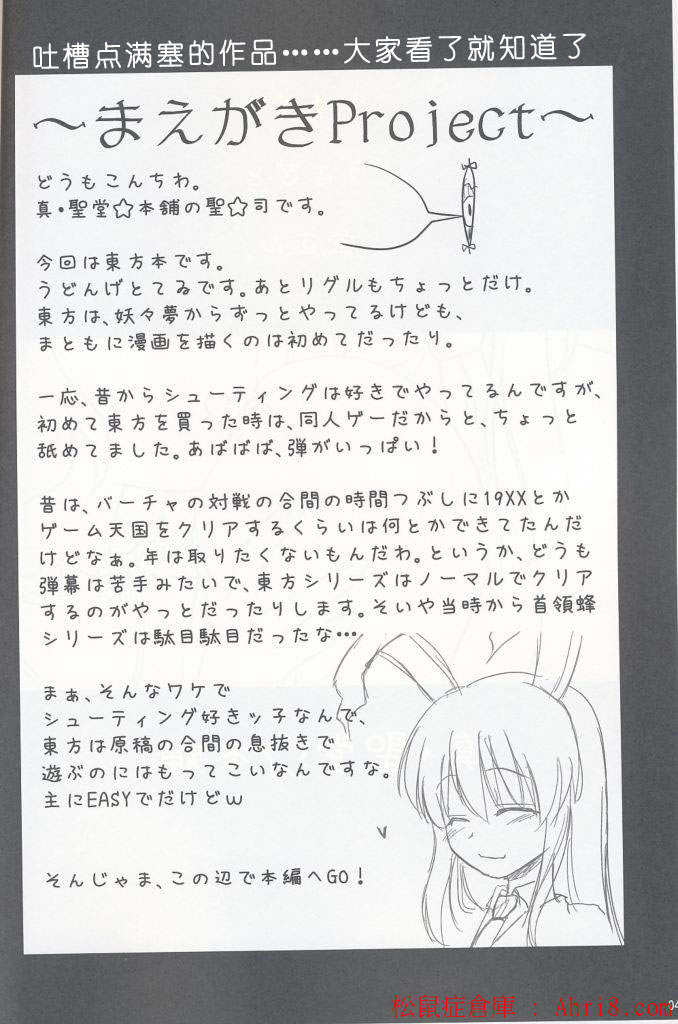 吐槽点满塞的作品……大家看了就知道了
～まえがきProject～
どうもこんちわ。
真・聖堂☆本舗の聖☆司です。
今回は東方本です。
うどんげとてゐです。あとリグルもちょっとだけ。
東方は、妖々夢からずっとやってるけども、
まともに漫画を描くのは初めてだったり。
一応、昔からシューティングは好きでやってるんですが、
初めて東方を買った時は、同人ゲーだからと、ちょっと
舐めてました。あばばば、弾がいっぱい！
昔は、バーチャの対戦の合間の時間つぶしに19XXとか
ゲーム天国をクリアするくらいは何とかできてたんだ
けどなぁ。年は取りたくないもんだわ。というか、どうも
弾幕は苦手みたいで、東方シリーズはノーマルでクリア
するのがやっとだったりします。そいや当時から首領蜂
シリーズは駄目駄目だったな…
まぁ、そんなワケで
シューティング好きッ子なんで、
東方は原稿の合間の息抜きで
遊ぶのにはもってこいなんですな。
主にEASYでだけどｗ
そんじゃま、この辺で本編へGO！
04
松鼠症倉庫 : Ahri8.com